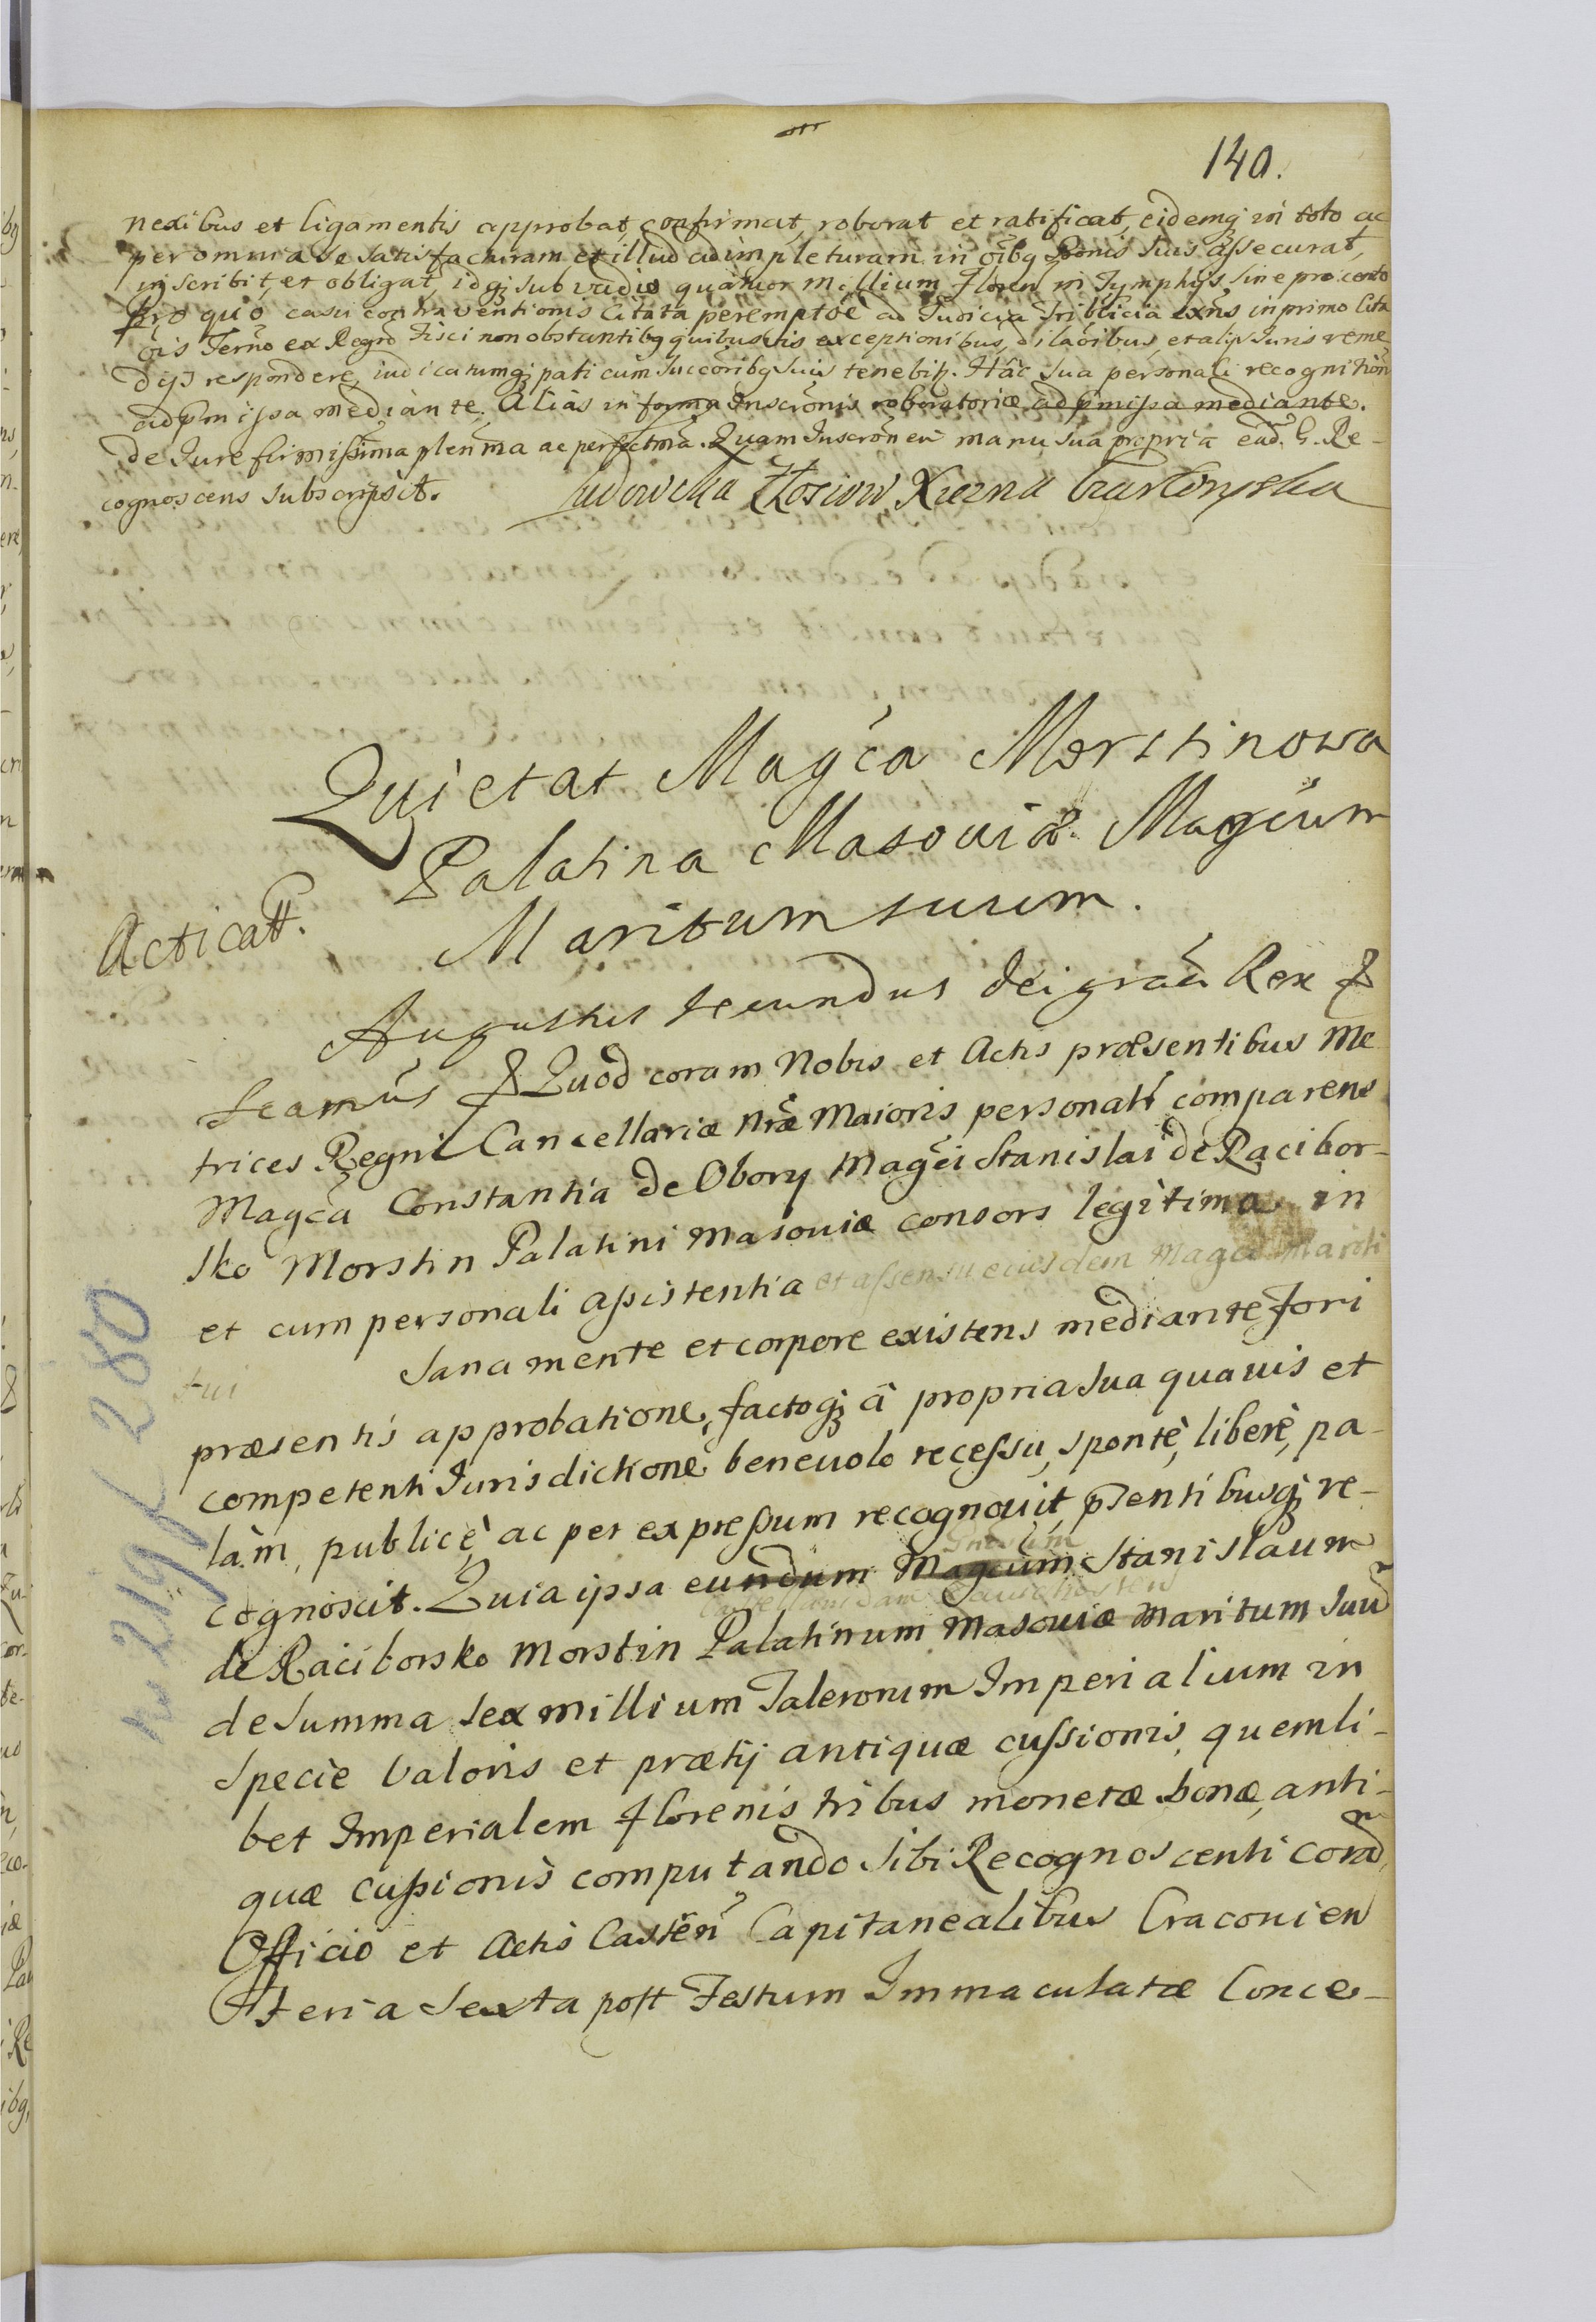 140.
nexibus et ligamentis approbat, confirmat, roborat et ratificat, eidemq; in toto ac
per omnia se satisfacturam et illud adimpleturam in oibq Bonis suis assecurat,
inscribit, et obligat, idq; sub vadio quatuor millium Floren in Tymphys sine pro cento
Pro quo casu contraventionis Citata peremptoe ad Iudicia Triblicia exns in primo Cita
ois Termo ex Regro Fisci non obstantibq quibusvis exceptionibus, dilaoibus, et alys Iuris reme
dijs respondere, iudicatumq; pati cum succoribq suis tenebit. Hac sua personali recognition
ad pmissa mediante. Alias in forma Inscronis roboratoriæ ad pmissa mediante.
de Iure firmissima plenma ac perfectma. Quam Inscronem manu sua propria ead. G. Re-
cognoscens subscripsit. Ludowika Xiezna Czartoryska
Quietat Magca Morstinowa
Palatina Masoviæ Magcum
Acticatt.
Maritum suum.
Augustus secundus Dei graa Rex &
scamus & Quod coram Nobis et Actis præsentibus Me
trices Regni Cancellariæ nræ Maioris personalr comparens
Magca Constantia de Obory Magci Stanislai de Racibor-
sko Morstin Palatini Masoviæ consors legitima in
et cum personali assistentia et assensu eiusdem Magci Mariti
sui sana mente et corpore existens mediante Fori
præsentis approbatione, factoq; à propria sua quavis et
competenti Iurisdictione benevolo recessu, spontè, liberè, pa-
làm, publicè ac per expressum recognovit, pstentibusq; re-
cognoscit. Quia ipsa eundum Magcum Stanislaum
de Raciborsko Morstin Palatinum Masoviæ Maritum suu
de Summa sex millium Taleronum Imperialium in
specie valoris et prætij antiquæ cussionis, quemli-
bet Imperialem Florenis tribus monetæ bonæ, anti-
quæ cussionis computando sibi Recognoscenti cora
Officio et Actis Casten Capitanealibus Cracovien
Feria Sexta post Festum Immaculatæ Conce-